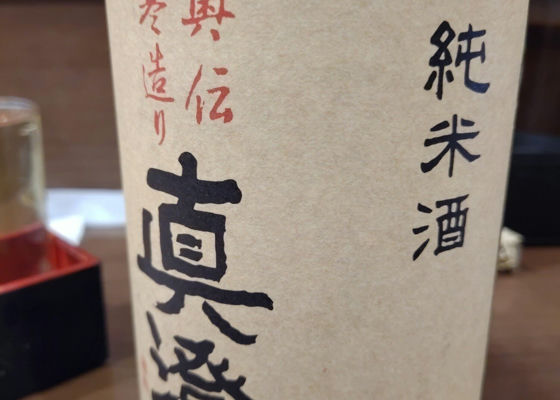 純米酒
奥伝
造り
真澄